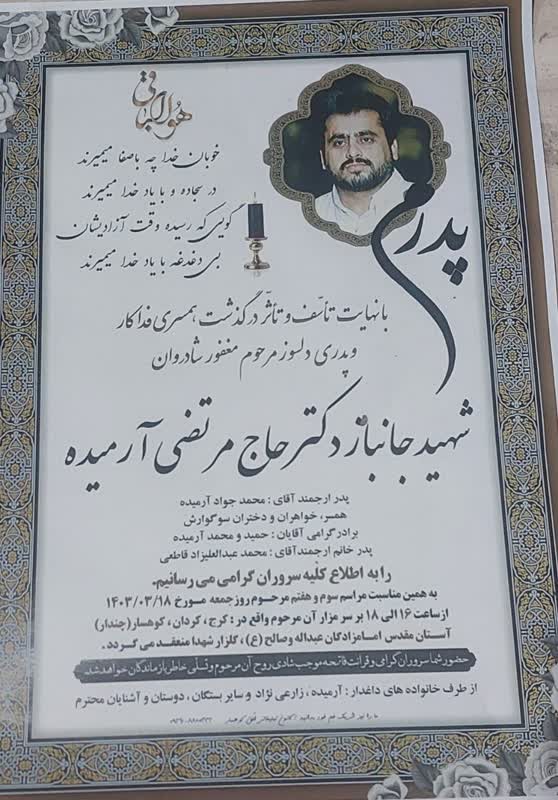 هوالباقی
خوبان خدا چه باصفا میمیرند
در سجاده و با یاد خدا میمیرند
گویی که رسیده وقت آزادیشان
بی دغدغه با یاد خدا میمیرند
پدرم
با نهایت تأسف و تأثر درگذشت همسری فداکار
و پدری دلسوز مرحوم مغفور شادروان
شهید جانباز دکتر حاج مرتضی آرمیده
پدر ارجمند آقای : محمد جواد آرمیده
همسر، خواهران و دختران سوگوارش
برادر گرامی آقایان : حمید و محمد آرمیده
پدر خانم ارجمند آقای : محمد عبدالعلیزاد قاطعی
را به اطلاع کلیه سروران گرامی می رسانیم.
به همین مناسبت مراسم سوم و هفتم مرحوم روز جمعه مورخ ۱۴۰۳/۰۳/۱۸
از ساعت ۱۶ الی ۱۸ بر سر مزار آن مرحوم واقع در : کرج ، کردان ، کوهسار (چندار)
آستان مقدس امامزادگان عبداله و صالح (ع) ، گلزار شهدا منعقد می گردد .
حضور شما سروران گرامی و قرائت فاتحه موجب شادی روح آن مرحوم و تسلی خاطر بازماندگان خواهد شد.
از طرف خانواده های داغدار : آرمیده ، زارعی نژاد و سایر بستگان ، دوستان و آشنایان محترم
ما را نیز شریک غم خود بدانید